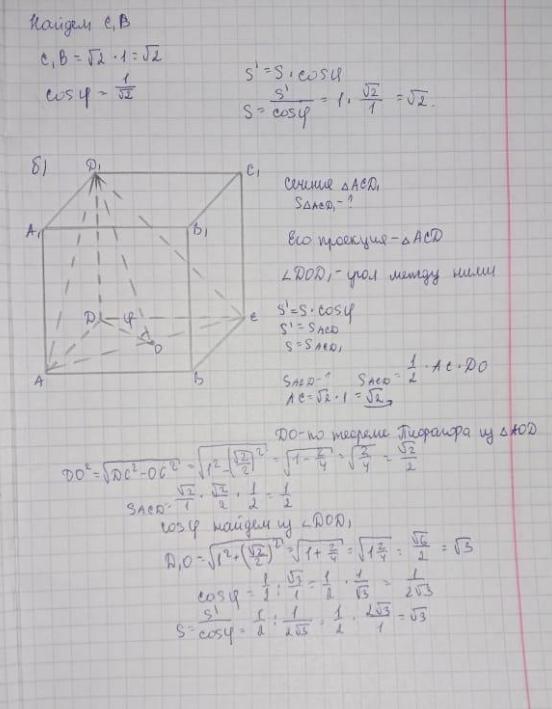 Найдем C₁B
C₁B = √2 · 1 = √2
cosφ = 1/√2
S' = S · cosφ
S = S'/cosφ = 1 · √2/1 = √2.
б)
D₁
C₁
A₁
B₁
D
φ
C
O
A
B
сечение △ACD₁
S△ACD₁ - ?
Его проекция - △ACD
∠DOD₁ - угол между ними
S' = S · cosφ
S' = SACD
S = SACD₁
SACD - ? SACD = 1/2 · AC · DO
AC = √2 · 1 = √2
DO - по теореме Пифагора из △AOD
DO² = √DC² - OC² = √1² - (√2/2)² = √1 - 2/4 = √2/4 = √2/2
SACD = √2/1 · √2/2 · 1/2 = 1/2
cosφ найдем из ∠DOD₁
D₁O = √1² + (√2/2)² = √1 + 2/4 = √1 2/4 = √6/2 = √3
cosφ = 1/2 : √3/1 = 1/2 · 1/√3 = 1/2√3
S = S'/cosφ = 1/2 : 1/2√3 = 1/2 · 2√3/1 = √3